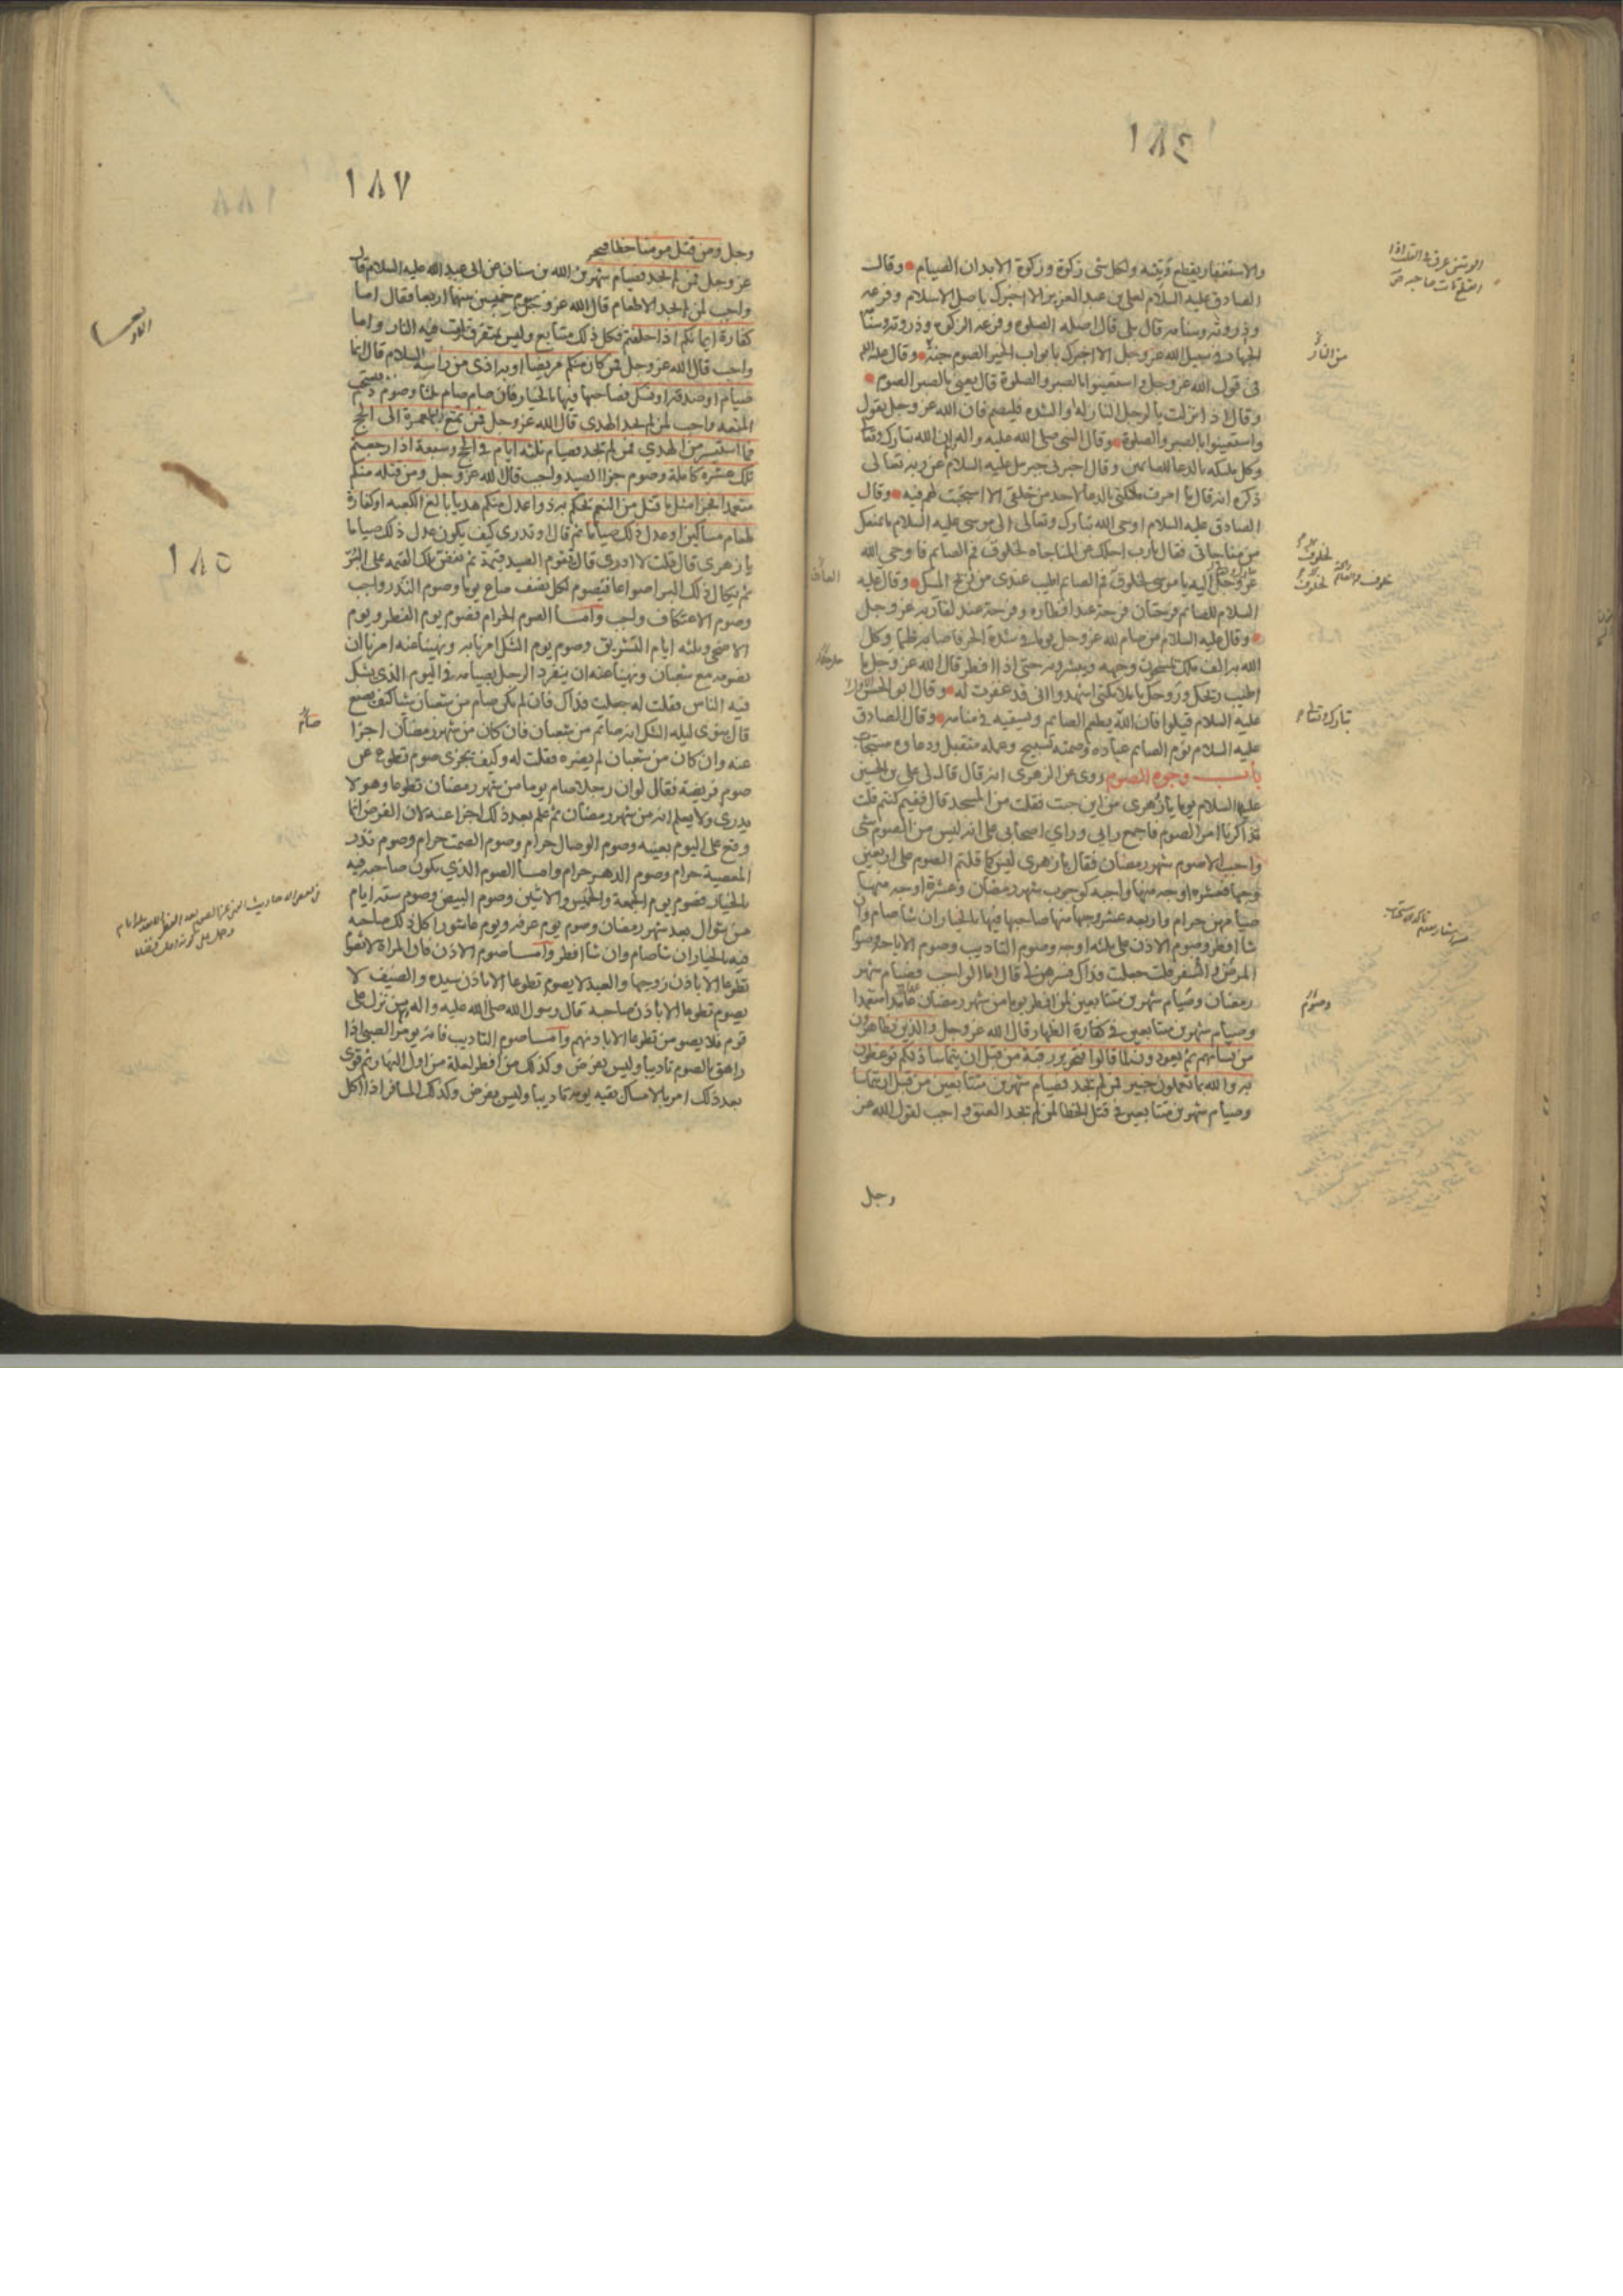 ١٨٤
والاستغفار يقطع وتينه ولكل شى زكوة وزكوة الابدان الصيام وقال
الصادق عليه السلام لعلى بن عبد العزيز الا اخبرك باصل الاسلام وفرعه
وذروته وسنامه قال بلى قال اصله الصلوة وفرعه الزكوة وذروته وسنامه
الجهاد فى سبيل الله عز وجل الا اخبرك بابواب الخير الصوم جنة وقال عليه السلم
فى قول الله عز وجل واستعينوا بالصبر والصلوة قال يعنى بالصبر الصوم
وقال اذا نزلت بالرجل النازلة او الشدة فليصم فان الله عز وجل يقول
واستعينوا بالصبر والصلوة وقال النبى صلى الله عليه واله ان الله تبارك وتعا
وكل ملئكه بالدعا للصائمين وقال اخبرنى جبرئل عليه السلام عن ربه تعالى
ذكره انه قال ما امرت ملئكتى بالدعا لاحد من خلقى الا استجبت لهم فيه وقال
الصادق عليه السلام اوحى الله تبارك وتعالى الى موسى عليه السلام ما يمنعك
من مناجاتى فقال يا رب اجلك عن المناجاه لخلوف فم الصايم فاوحى الله
عز وجل اليه يا موسى لخلوق فم الصايم اطيب عندى من ريح المسك وقال عليه
السلام للصايم فرحتان فرحة عند افطاره وفرحة عند لقا ربه عز وجل
وقال عليه السلام من صام لله عز وجل يوما فى شدة الحر فاصابه ظما وكل
الله به الف ملك يمسحون وجهه ويبشرونه حتى اذا افطر قال الله عز وجل ما
اطيب ريحك وروحك يا ملائكتى اشهدوا انى قد غفرت له وقال ابو الحسن
عليه السلام قيلوا فان الله يطعم الصايم ويسقيه فى منامه وقال الصادق
عليه السلام نوم الصايم عباده وصمته تسبيح وعمله متقبل ودعاوه مستجاب
باب وجوه الصوم روى عن الزهرى انه قال قال لى على بن الحسين
عليهما السلام يوما يا زهرى من اين جئت فقلت من المسجد قال ففيم كنتم قلت
تذاكرنا امر الصوم فاجمع رايى وراى اصحابى على انه ليس من الصوم شى
واجب الا صوم شهر رمضان فقال يا زهرى ليس كما قلتم الصوم على اربعين
وجها فعشرة اوجه منها واجبه كوجوب شهر رمضان وعشرة اوجه منها
صيامهن حرام واربعه عشر وجها منها صاحبها فيها بالخيار ان شا صام وان
شا افطر وصوم الاذن على ثلثه اوجه وصوم التاديب وصوم الاباحه وصوم
المرض والسفر قلت جعلت فداك فسرهن لى قال اما الواجب فصيام شهر
رمضان وصيام شهرين متتابعين لمن افطر يوما من شهر رمضان عامدا متعمدا
وصيام شهرين متتابعين فى كفارة الظهار قال الله عز وجل والذين يظاهرون
من نسائهم ثم يعودون لما قالوا فتحرير رقبة من قبل ان يتماسا ذلكم توعظون
به والله بما تعملون خبير فمن لم يجد فصيام شهرين متتابعين من قبل ان يتماسا
وصيام شهرين متتابعين فى قتل الخطا لمن لم يجد العتق واجب لقول الله عز
وجل
الوتين عرق فى القلب اذا
انقطع مات صاحبه
من النار
لخلوف
تبارك وتعا
وصوم
١٨٧
وجل ومن قتل مومنا خطا فتحر
عز وجل فمن لم يجد فصيام شهرين الله بن سنان عن ابى عبد الله عليه السلام قال
واجب لمن لم يجد الاطعام قال الله عز وجل
كفارة ايمانكم اذا حلفتم فكل ذلك متتابع وليس بمتفرق
واجب قال الله عز وجل فمن كان منكم مريضا او به اذى من راسه
صيام او صدقة او نسك فصاحبها فيها بالخيار فان صام صام ثلثا وصوم دم
المتعه واجب لمن لم يجد الهدى قال الله عز وجل فمن تمتع بالعمرة الى الحج
فما استيسر من الهدي فمن لم يجد فصيام ثلثة ايام فى الحج وسبعة اذا رجعتم
تلك عشره كاملة وصوم جزاا الصيد واجب قال الله عز وجل ومن قتله منكم
متعمدا فجزا مثل ما قتل من النعم يحكم به ذوا عدل منكم هديا بالغ الكعبه او كفارة
طعام مساكين او عدل ذلك صياما ثم قال او تدرى كيف يكون عدل ذلك صياما
يا زهرى قال قلت لا ادرى قال يقوم الصيد قيمة ثم تفض تلك القيمه على البر
ثم يكال ذلك البر اصواعا فيصوم لكل نصف صاع يوما وصوم النذر واجب
وصوم الاعتكاف واجب واما الصوم الحرام فصوم يوم الفطر ويوم
الاضحى وثلثه ايام التشريق وصوم يوم الشك امرنا به ونهينا عنه امرنا ان
نصومه مع شعبان ونهينا عنه ان ينفرد الرجل بصيامه فى اليوم الذى يشك
فيه الناس فقلت له جعلت فداك فان لم يكن صام من شعبان شيا كيف يصنع
قال ينوى ليله الشك انه صايم من شعبان فان كان من شهر رمضان اجزا
عنه وان كان من شعبان لم يضره فقلت له وكيف يجزى صوم تطوع عن
صوم فريضة فقال لو ان رجلا صام يوما من شهر رمضان تطوعا وهو لا
يدرى ولا يعلم انه من شهر رمضان ثم علم بعد ذلك اجزا عنه لان الفرض انما
وقع على اليوم بعينه وصوم الوصال حرام وصوم الصمت حرام وصوم نذر
المعصية حرام وصوم الدهر حرام واما الصوم الذى يكون صاحبه فيه
بالخيار فصوم يوم الجمعة والخميس والاثنين وصوم البيض وصوم ستة ايام
من شوال بعد شهر رمضان وصوم يوم عرفه ويوم عاشورا كل ذلك صاحبه
فيه بالخيار ان شا صام وان شا افطر واما صوم الاذن فان المراة لا تصوم
تطوعا الا باذن زوجها والعبد لا يصوم تطوعا الا باذن سيده والضيف لا
يصوم تطوعا الا باذن صاحبه قال رسول الله صلى الله عليه واله من نزل على
قوم فلا يصومن تطوعا الا باذنهم واما صوم التاديب فانه يومر الصبى اذا
راهق بالصوم تاديبا وليس بفرض وكذلك من افطر لعلة من اول النهار ثم قوى
بعد ذلك امر بالامساك بقيه يومه تاديبا وليس بفرض وكذلك المسافر اذا اكل
١٨٥
صائم